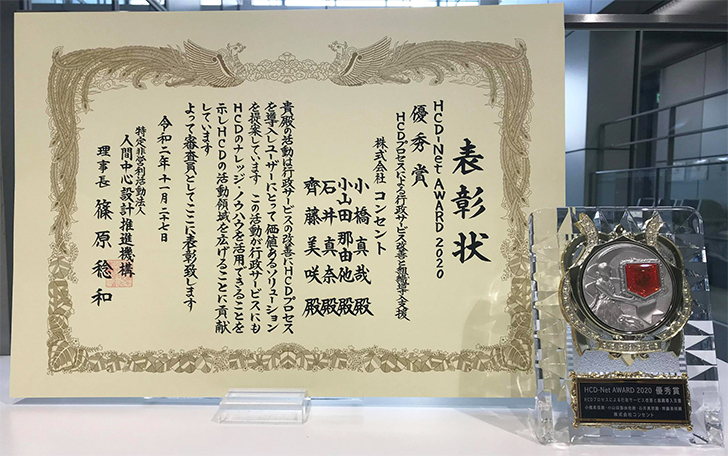 表彰状
HCD-Net AWARD 2020
優秀賞
HCDプロセスによる行政サービス改善と組織導入支援
株式会社 コンセント
小橋真哉殿
小山田那由他殿
石井真奈殿
齊藤美咲殿
貴殿の活動は行政サービスの改善にHCDプロセス
を導入しユーザーにとって価値あるソリューション
を提案しています この活動が行政サービスにも
HCDのナレッジ・ノウハウを活用できることを
示しHCDの活動領域を広げることに貢献
しています
よって審査員としてここに表彰致します
令和二年十一月二十七日
特定非営利活動法人
人間中心設計推進機構
理事長 篠原稔和
HCD-Net AWARD 2020 優秀賞
HCDプロセスによる行政サービス改善と組織導入支援
株式会社コンセント